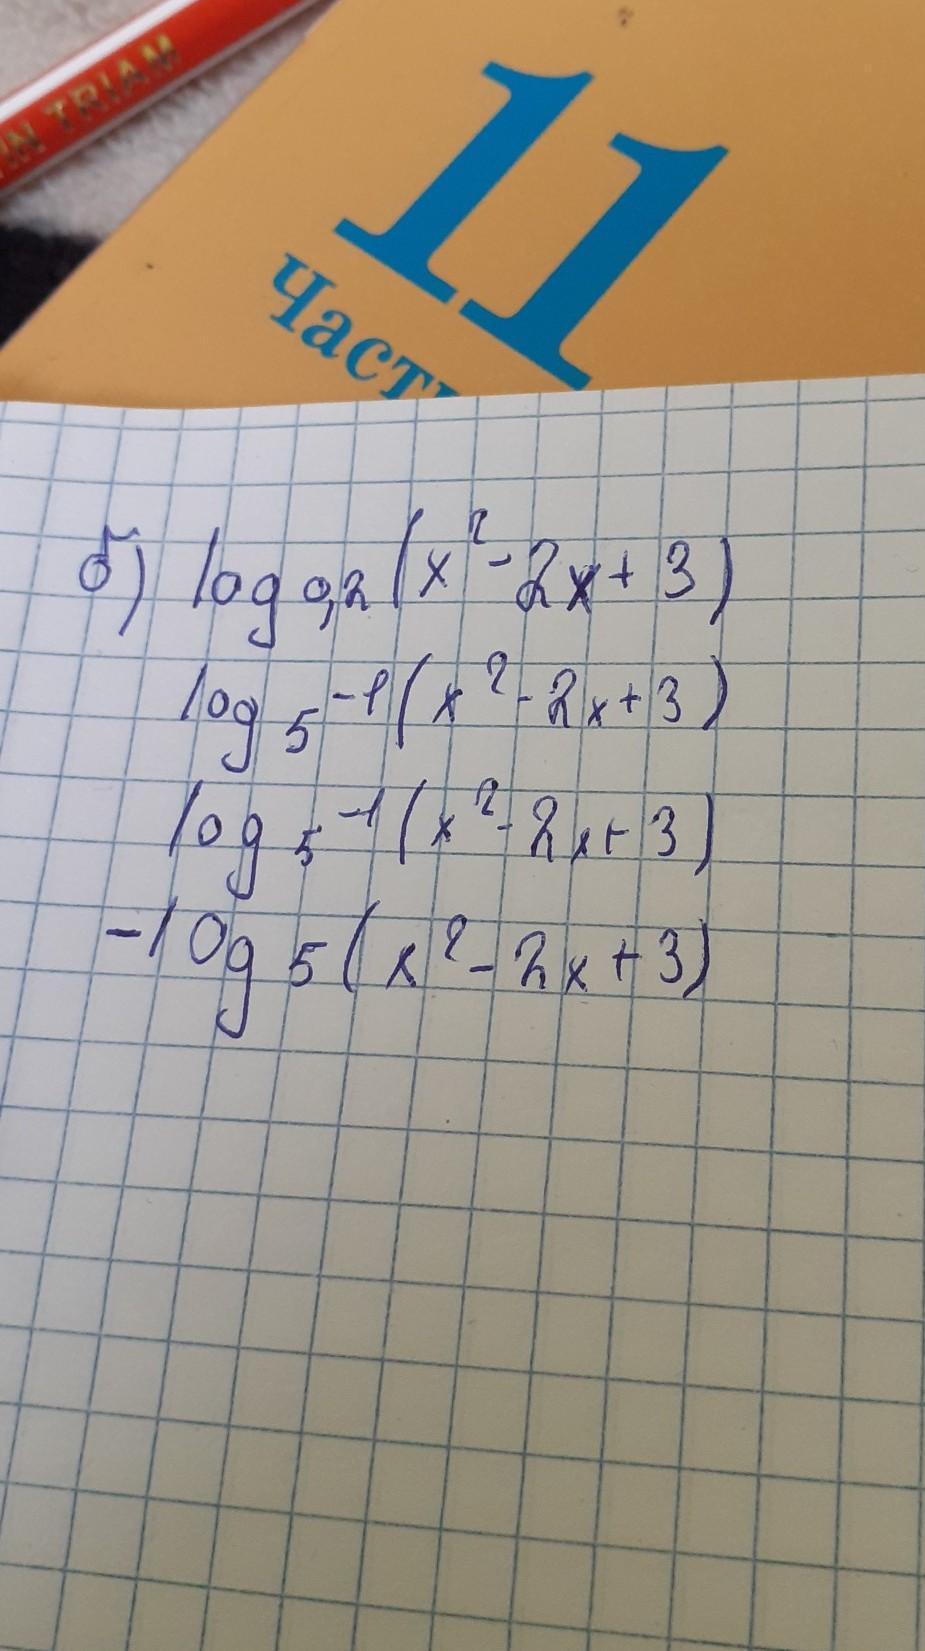 IN TRIAM
11
Част
б) log 0,2 (x² - 2x + 3)
log 5⁻¹ (x² - 2x + 3)
log 5⁻¹ (x² - 2x + 3)
-log 5 (x² - 2x + 3)